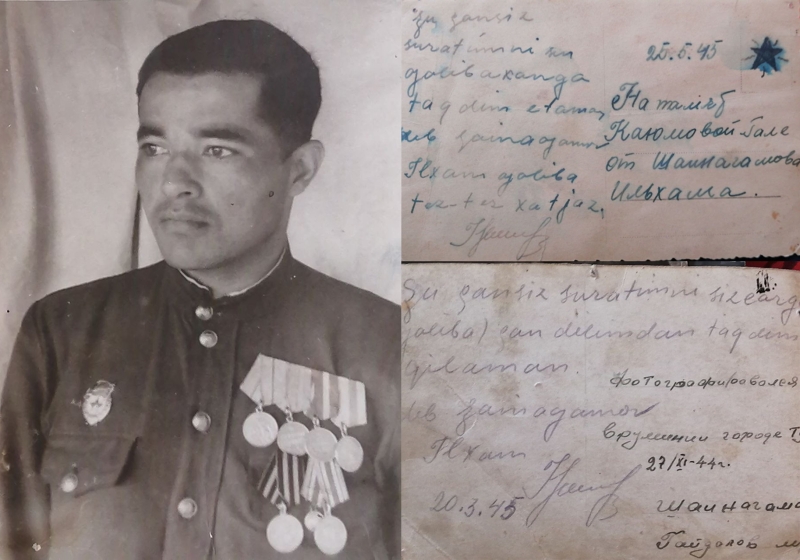 Şu çansiz
suratimni şu
golibaxanga
taqdim etaman
deb Şainagamov
Ilxam goliba
tez-tez xat jaz.
25.5.45
На память
Каюмовой Гале
от Шаинагамова
Ильхама.
Şu çansiz suratimni sizlarg
goliba) çan delimdan taqdim
qilaman.
deb Şainagamov
Ilxam
20.3.45
Фотографировался
в румынии городе Ту
27/XI-44г.
Шаинагамо